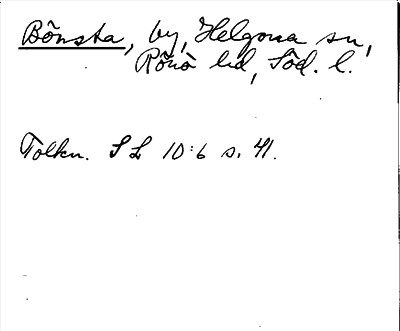 Bönsta, by, Helgona sn,
Rönö hd, Söd. l.
Tolkn. S L 10:6 s. 41.